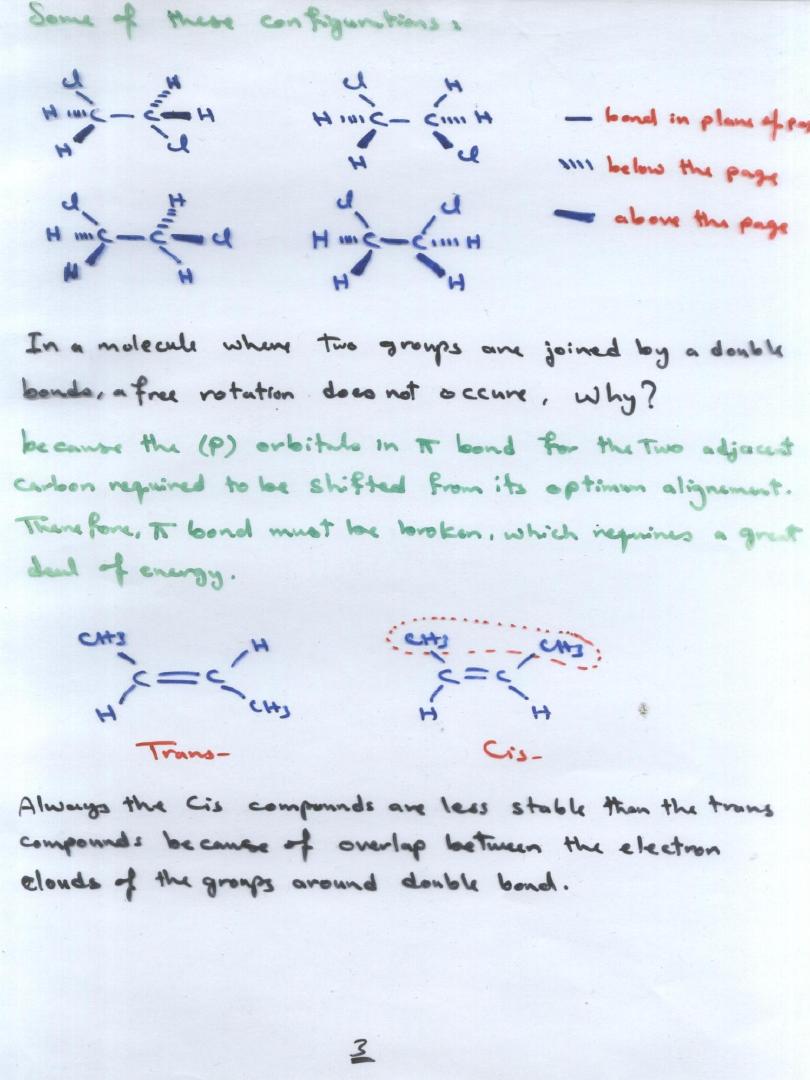 Some of these configurations:
Cl H
H C — C H
H Cl
Cl H
H C — C H
H Cl
— bond in plane of pa
below the page
above the page
Cl H
H C — C Cl
H H
Cl Cl
H C — C H
H H
In a molecule where two groups are joined by a double
bonds, a free rotation does not occure, Why?
because the (P) orbitals in π bond for the Two adjacent
carbon required to be shifted from its optimum alignement.
Therefore, π bond must be broken, which requires a great
deal of energy.
CH3 H
C = C
H CH3
Trans-
CH3 CH3
C = C
H H
Cis-
Always the Cis compounds are less stable than the trans
compounds because of overlap between the electron
clouds of the groups around double bond.
3